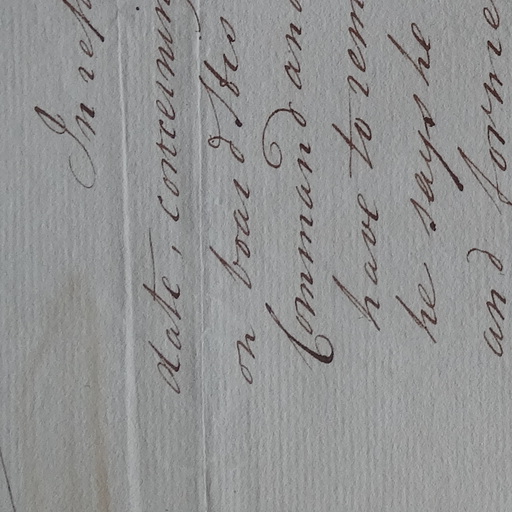 In rep
date, concerning
on board His
Command and
have to rem
he says he
and forme